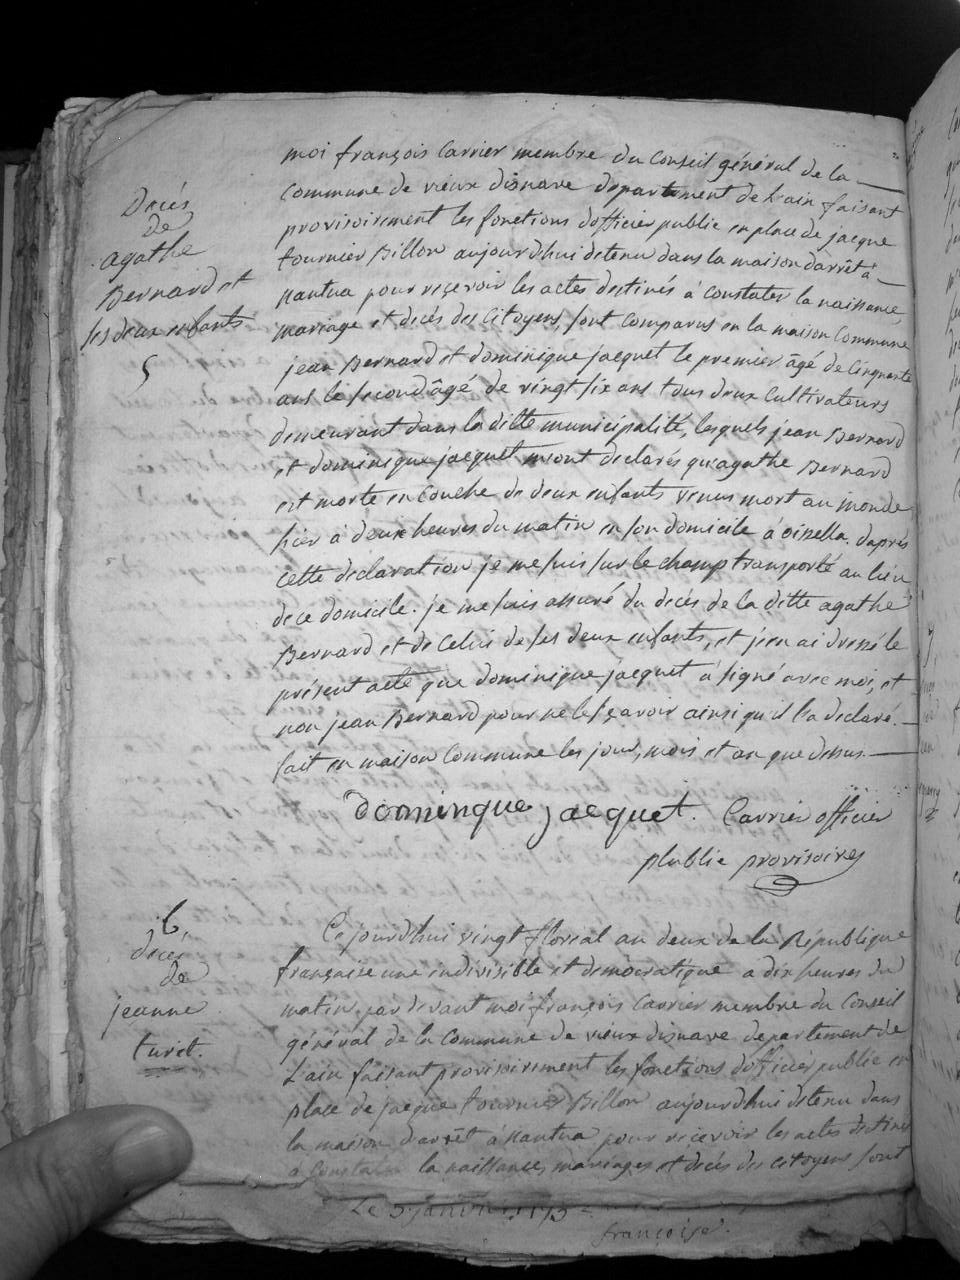 moi françois Carrier membre du Conseil général de la
Commune de vieux disnave departement de Lain faisant
provisoirement les fonctions dofficier public en place de jacque
tournier Billon aujourdhui detenu dans la maison darrêt à
Nantua pour reçevoir les actes destinés à Constater la naissance,
mariage et decès des Citoyens, sont Comparus en la maison Commune
jean Bernard et dominique jacquet le premier âgé de Cinquante
ans le second âgé de vingt six ans tous deux Cultivateurs
demeurant dans la ditte municipalité, lesquels jean Bernard
et dominique jacquet m'ont declarés qu'agathe Bernard
est morte en Couche de deux enfants venus mort au monde
hier à deux heures du matin en son domicile à oisella. daprès
Cette declaration je me suis sur le champ transporté au lieu
de ce domicile. je me suis assuré du decès de la ditte agathe
Bernard et de Celui de ses deux enfants, et j'en ai dressé le
présent acte que dominique jacquet à signé avec moi, et
non jean Bernard pour ne le sçavoir ainsi qu'il l'a declaré.
fait en maison Commune les jour, mois et an que dessus.
dominque jacquet. Carrier officier
plublic provisoires
Decès
de
agathe
Bernard et
ses deux enfants
5
6
decès
de
jeanne
turet.
Cejourdhui vingt floreal an deux de la République
française une indivisible et democratique a dix heures du
matin, par devant moi françois Carrier membre du Conseil
général de la Commune de vieux disnave departement de
L'ain faisant provisoirement les fonctions dofficier public en
place de jacque tournier Billon aujourdhui detenu dans
la maison darrêt à Nantua pour recevoir les actes destinés
a Constater la naissances, mariages et decès des citoyens sont
Le 5 janvier
françoise.